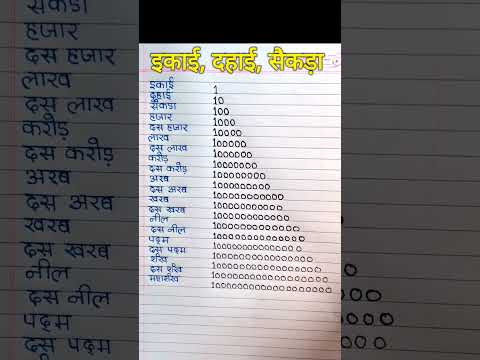 इकाई, दहाई, सैकड़ा
इकाई 1
दहाई 10
सैकडा 100
हजार 1000
दस हजार 10000
लाख 100000
दस लाख 1000000
करोड़ 10000000
दस करोड़ 100000000
अरब 1000000000
दस अरब 10000000000
खरब 100000000000
दस खरब 1000000000000
नील 10000000000000
दस नील 100000000000000
पद्म 1000000000000000
दस पद्म 10000000000000000
शंख 100000000000000000
दस शंख 1000000000000000000
महाशंख 10000000000000000000